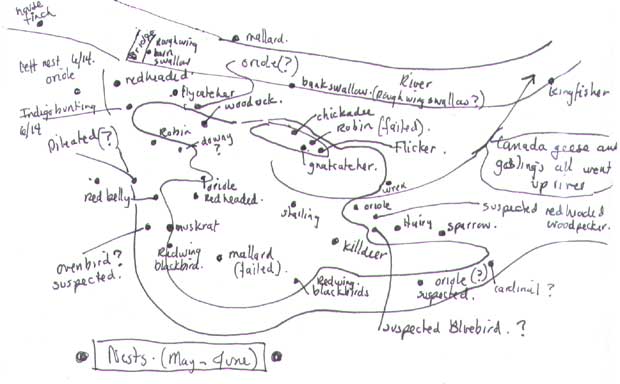 house
finch
mallard.
Bridge
Roughwing
barn
swallow
oriole(?)
Left nest 6/14.
oriole
redheaded.
flycatcher
bankswallow. (Roughwing swallow?)
River
Kingfisher
Indigo bunting
6/14
woodcock.
chickadee
Robin (failed).
Flicker.
gnatcatcher.
Robin
downy
?
Pileated(?)
Canada geese and
goslings all went
up river
red belly
oriole
Redheaded.
wren
oriole
starling
suspected redheaded
woodpecker.
Hairy
sparrow.
muskrat
Redwing
blackbird.
killdeer
ovenbird?
suspected.
mallard
(failed).
Redwing
blackbirds
oriole (?)
suspected.
cardinal?
suspected Bluebird. ?
Nests. (May - June)